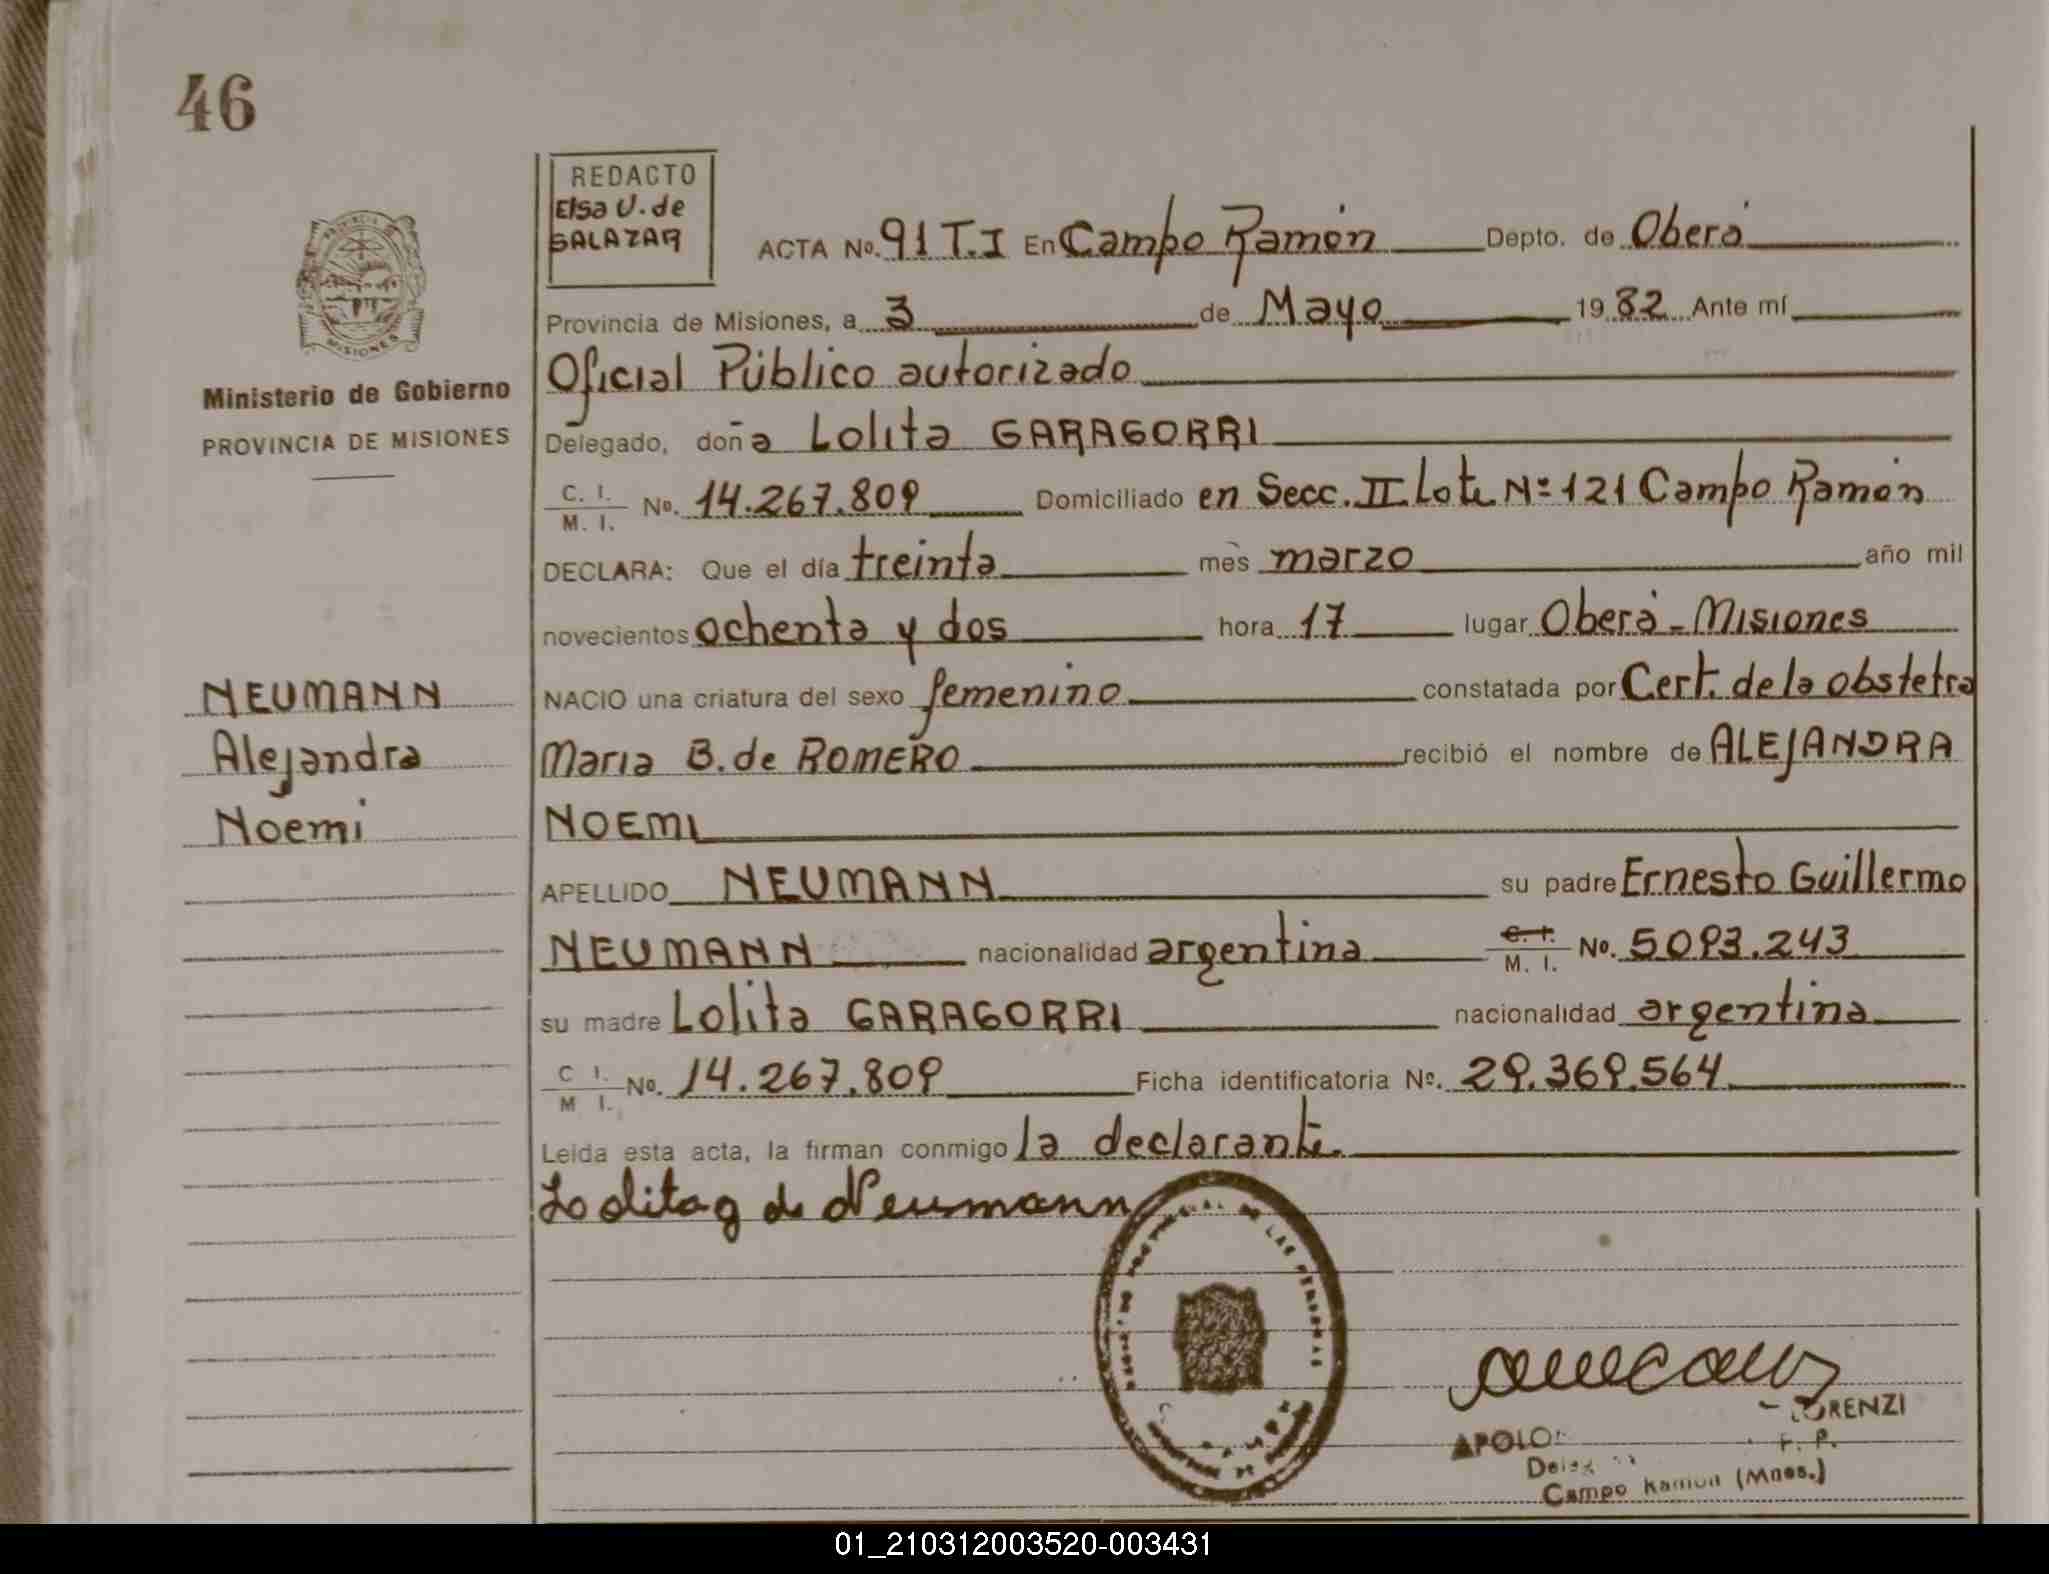 46
REDACTO
Elsa U. de
SALAZAR
ACTA Nº. 91 T.I En Campo Ramón Depto. de Oberá
Provincia de Misiones, a 3 de Mayo 19 82 Ante mí
Oficial Público autorizado
Delegado, doña Lolita GARAGORRI
C. I. / M. I. Nº. 14.267.809 Domiciliado en Secc. II Lote Nº 121 Campo Ramón
DECLARA: Que el día treinta mès marzo año mil
novecientos ochenta y dos hora 17 lugar Oberá - Misiones
NACIO una criatura del sexo femenino constatada por Cert. de la obstetra
Maria B. de ROMERO recibió el nombre de ALEJANDRA
NOEMI
APELLIDO NEUMANN su padre Ernesto Guillermo
NEUMANN nacionalidad argentina C. I. / M. I. Nº. 5093.243
su madre Lolita GARAGORRI nacionalidad argentina
C I. / M I. Nº. 14.267.809 Ficha identificatoria Nº. 29.369.564
Leida esta acta, la firman conmigo la declarante.
Lolita g de Neumann
PROVINCIA
MISIONES
Ministerio de Gobierno
PROVINCIA DE MISIONES
NEUMANN
Alejandra
Noemi
DE LAS PERSONAS
LORENZI
APOLO
Campo Ramon (Mnes.)
01_210312003520-003431